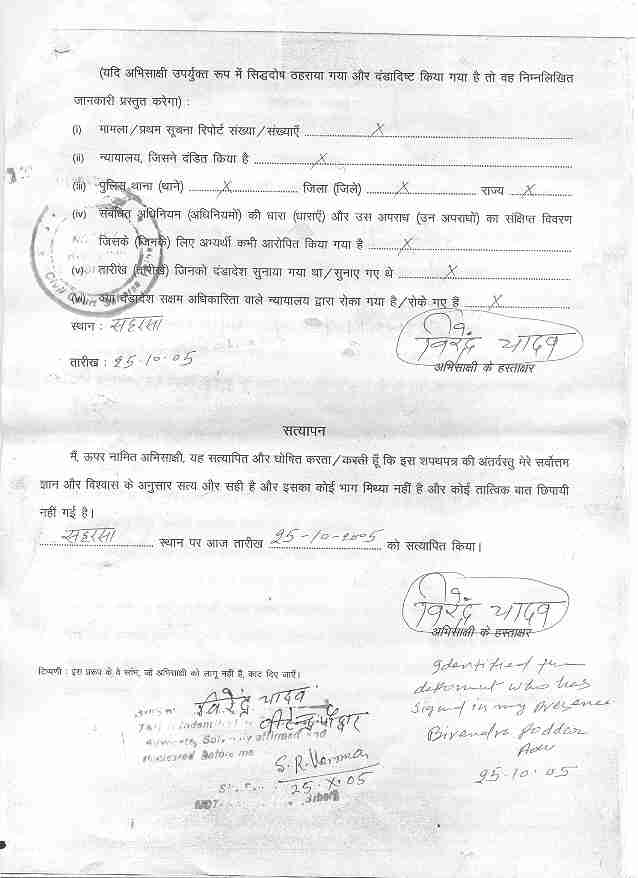 (यदि अभिसाक्षी उपर्युक्त रूप में सिद्धदोष ठहराया गया और दंडादिष्ट किया गया है तो वह निम्नलिखित
जानकारी प्रस्तुत करेगा) :
(i) मामला/प्रथम सूचना रिपोर्ट संख्या/संख्याएँ ........ X ........
(ii) न्यायालय, जिसने दंडित किया है ........ X ........
(iii) पुलिस थाना (थाने) ........ X ........ जिला (जिले) ........ X ........ राज्य ........ X ........
(iv) संबंधित अधिनियम (अधिनियमों) की धारा (धाराएँ) और उस अपराध (उन अपराधों) का संक्षिप्त विवरण
जिसके (जिनके) लिए अभ्यर्थी कभी आरोपित किया गया है ........ X ........
(v) तारीख (तारीखें) जिनको दंडादेश सुनाया गया था/सुनाए गए थे ........ X ........
(vi) क्या दंडादेश सक्षम अधिकारिता वाले न्यायालय द्वारा रोका गया है/रोके गए हैं ........ X ........
Civil Court
स्थान : सहरसा
वि.
विरेंद्र यादव
तारीख : 25-10-05
अभिसाक्षी के हस्ताक्षर
सत्यापन
मैं, ऊपर नामित अभिसाक्षी, यह सत्यापित और घोषित करता/करती हूँ कि इस शपथपत्र की अंतर्वस्तु मेरे सर्वोत्तम
ज्ञान और विश्वास के अनुसार सत्य और सही है और इसका कोई भाग मिथ्या नहीं है और कोई तात्विक बात छिपायी
नहीं गई है।
सहरसा स्थान पर आज तारीख 25-10-2005 को सत्यापित किया।
वि.
विरेंद्र यादव
अभिसाक्षी के हस्ताक्षर
टिप्पणी : इस प्ररूप के वे स्तंभ, जो अभिसाक्षी को लागू नहीं है, काट दिए जाएँ।
विरेंद्र यादव
affirmed and
Before me
S.R. Verman
25.X.05
Identified the
deponent who has
signed in my presence
Birendra Poddar
Adv
25-10-05